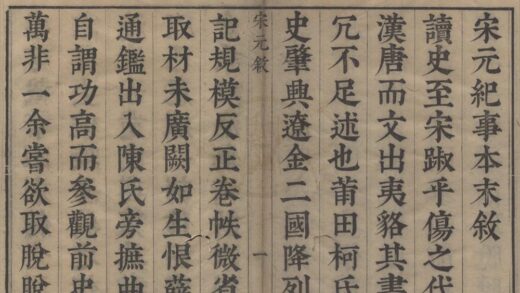 宋元紀事本末敘
讀史至宋踧乎傷之代
漢唐而文出夷貉其書
冗不足述也莆田柯氏
史肇興遼金二國降列
宋元敘
一
記規模反正卷帙微省
取材未廣闕如生恨薛
通鑑出入陳氏旁摭曲
自謂功高而參觀前史
萬非一余嘗欲取脫脫